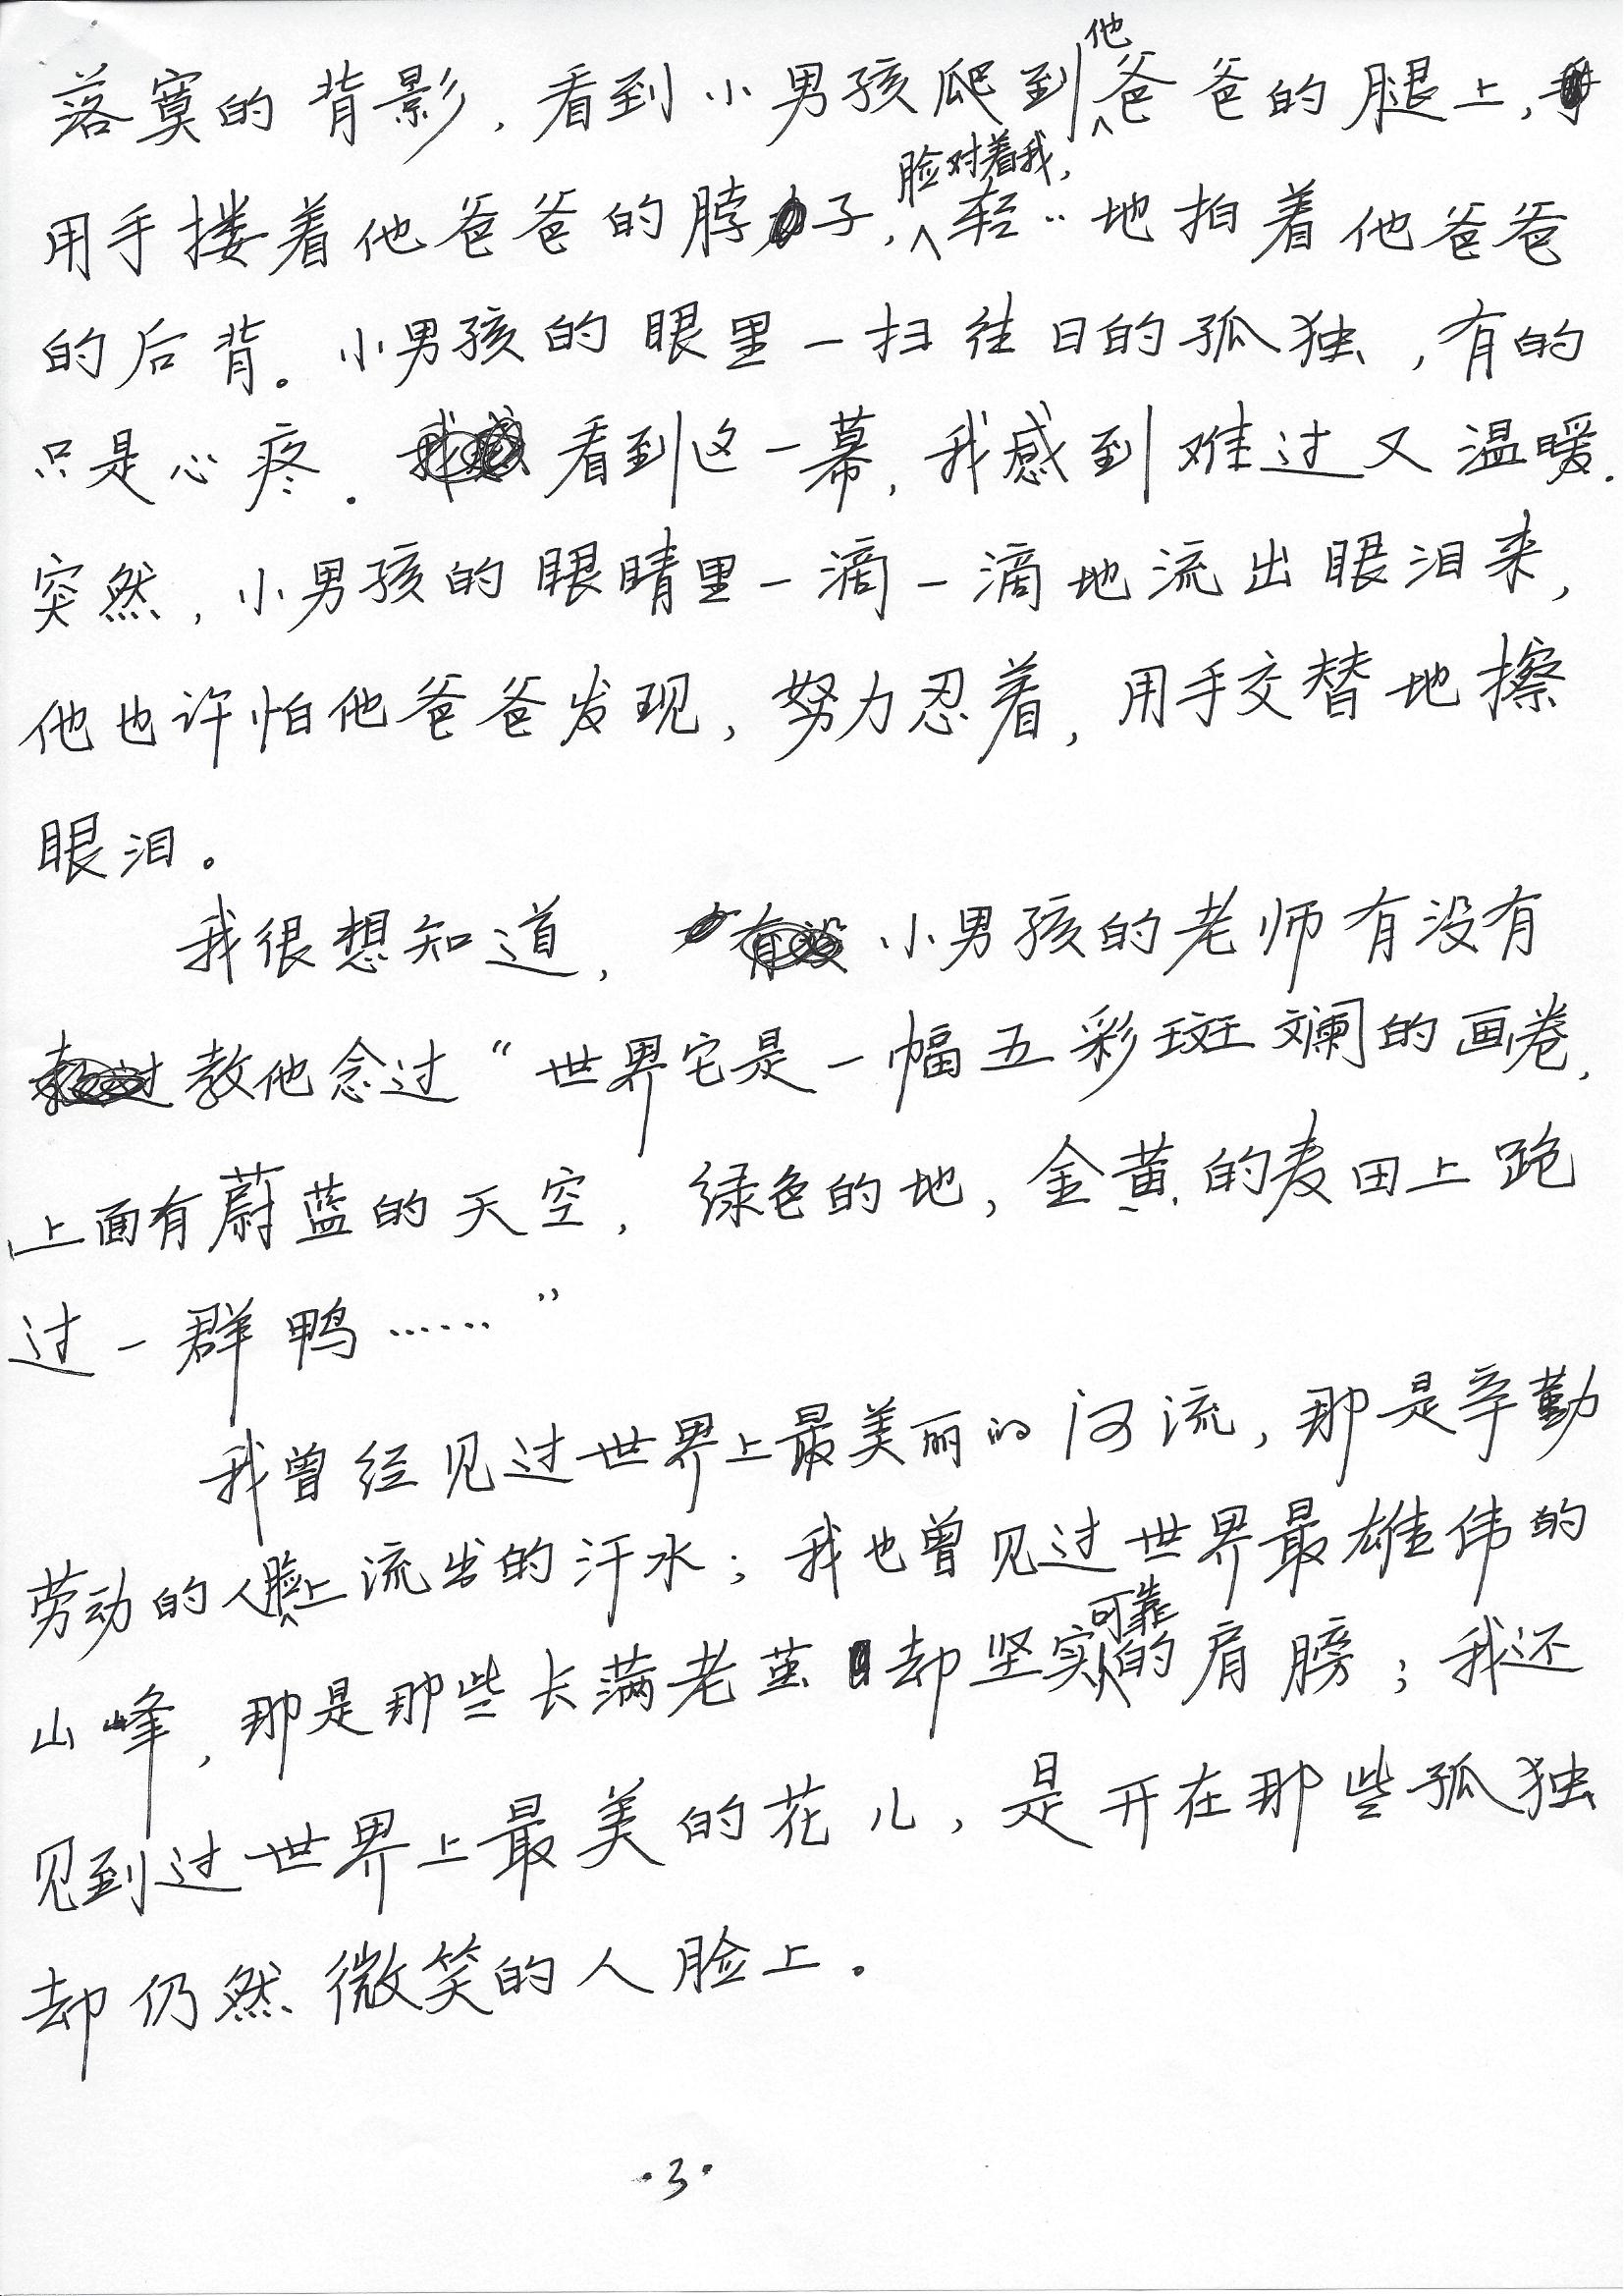 落寞的背影，看到小男孩爬到他爸爸的腿上，
用手搂着他爸爸的脖子，脸对着我，轻〃地拍着他爸爸
的后背。小男孩的眼里一扫往日的孤独，有的
只是心疼．看到这一幕，我感到难过又温暖．
突然，小男孩的眼睛里一滴一滴地流出眼泪来，
他也许怕他爸爸发现，努力忍着，用手交替地擦
眼泪。
我很想知道，小男孩的老师有没有
教他念过“世界它是一幅五彩斑斓的画卷，
上面有蔚蓝的天空，绿色的地，金黄的麦田上跑
过一群鸭……”
我曾经见过世界上最美丽的河流，那是辛勤
劳动的人脸上流出的汗水；我也曾见过世界最雄伟的
山峰，那是那些长满老茧却坚实可靠的肩膀；我还
见到过世界上最美的花儿，是开在那些孤独
却仍然微笑的人脸上．
·3·